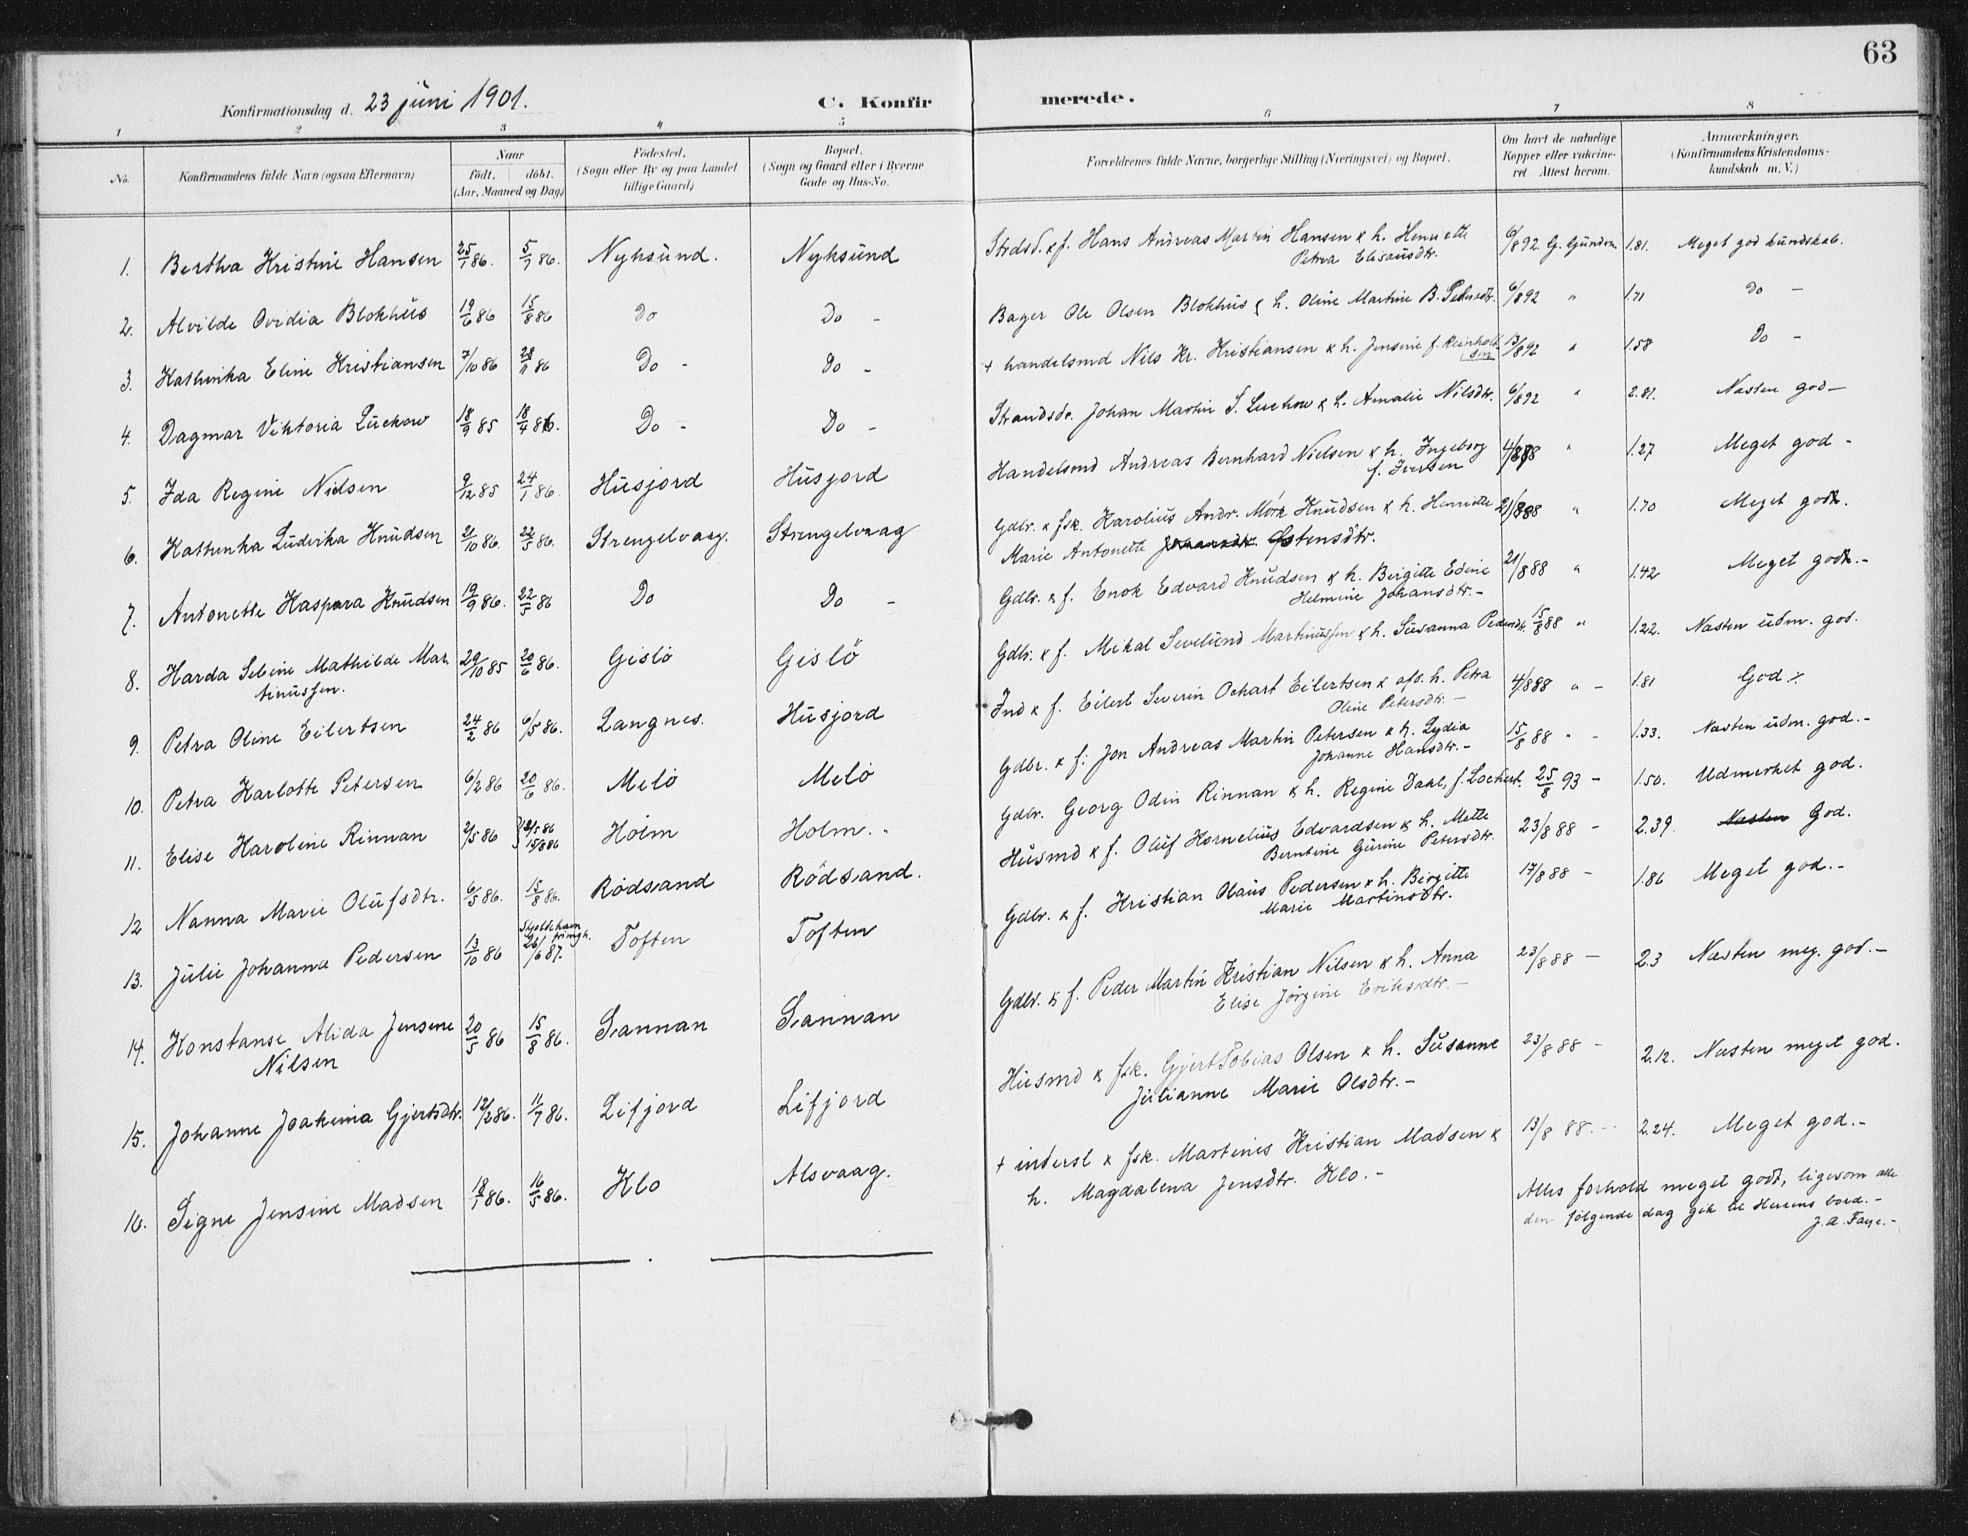 63
Konfirmationsdag d. 23 juni 1901. C. Konfirmerede.
1 2 3 4 5 6 7 8
No. Konfirmandens fulde Navn (ogsaa Efternavn) Naar födt. döbt. (Aar, Maaned og Dag) Födested. (Sogn eller By og paa Landet tillige Gaard) Bopæl. (Sogn og Gaard eller i Byerne Gade og Hus-No. Forældrenes fulde Navne, borgerlige Stilling (Næringsvei) og Bopæl. Om havt de naturlige Kopper eller vakcineret Attest herom. Anmærkninger. (Konfirmandens Kristendomskundskab m. V.)
1. Bertha Kristine Hansen 25/1 86. 5/7 86. Nyksund. Nyksund Strdsd. & f. Hans Andreas Martin Hansen & h. Henriette 6/892 G. Gundrn. 1.81. Meget god kundskab.
Petrea Elisausdtr.
2. Alvilde Ovidia Blokhus 19/6 86 15/8 86 Do Do - Bager Ole Olsen Blokhus & h. Oline Martine B. Pedersdtr. 6/892 " 1.71 Do -
3. Kathinka Eline Kristiansen 7/10 86 28/11 86 Do - Do - + handelsmd Nils Kr. Kristiansen & h. Jensine f. Reinholdsen 13/892 " 1.58 Do -
4. Dagmar Viktoria Luckow 18/9 85 18/4 86. Do - Do - Strandsdr. Johan Martin S. Luckow & h. Amalie Nilsdtr. 6/892 " 2.81. Næsten god -
5. Ida Regine Nielsen 9/12 85 24/1 86. Husjord Husjord Handelsmd Andreas Bernhard Nielsen & h. Ingeborg 4/888 " 1.27 Meget god -
f. Iversen
6. Kathinka Ludvika Knudsen 2/10 86. 22/5 86. Strengelvaag. Strengelvaag Gdbr. & fsk. Karolius Andr. Mørk Knudsen & h. Henriette 21/888 " 1.70 Meget godt.
Marie Antonette Østensdtr.
7. Antonette Kaspara Knudsen 19/9 86. 22/5 86 Do Do - Gdbr. & f. Enok Edvard Knudsen & h. Birgitte Edine 21/888 " 1.42 Meget godt.-
Helmine Johansdtr.-
8. Harda Sebine Mathilde Mar- 29/10 85 20/6 86. Gislö Gislö Gdbr. & f. Mikal Sevelund Martinussen & h. Susanna Pedersdtr. 15/8 88 " 1.22. Næsten udm. god.
tinussen.
9. Petra Oline Eilertsen 24/2 86 6/5 86. Langnes. Husjord Ind & f. Eilert Severin Ochart Eilertsen & afd. h. Petra 4/888 " - 1.81 God
Oline Petersdtr. -
10. Petra Karlotte Petersen 6/2 86 20/6 86. Melö Melö Gdbr. & f. Jon Andreas Martin Petersen & h. Lydia 15/8 88 " - 1.33. Næsten udm. god.-
Johanne Hansdtr.-
11. Elise Karoline Rinnan 2/5 86 12/5 86 15/8 86 Holm Holm. Gdbr. Georg Odin Rinnan & h. Regine Dahl, f. Lochert. 25/8 93 - 1.50. Udmerket god.
12 Nanna Marie Olufsdtr. 6/5 86. 15/8 86. Rödsand Rödsand. Husmd & f. Oluf Kornelius Edvardsen & h. Mette 23/888 - 2.39. Næsten God.
Berntine Gurine Petersdtr.
13. Julie Johanna Pedersen 13/10 86 26/6 87. Toften Toften Gdbr. & f. Kristian Olaus Pedersen & h. Birgitte 17/888 - 1.86 Meget god.-
Marie Martinsdtr.
14. Konstanse Alida Jensine 20/5 86 15/8 86. Sannan Sannan Gdbr. & f. Peder Martin Kristian Nilsen & h. Anna 23/888 - 2.3 Næsten meg. god.-
Nilsen Elise Jörgine Eriksdtr.-
15. Johanne Joakima Gjertsdtr. 12/2 86. 11/7 86. Lifjord Lifjord Husmd & fsk. Gjert Tobias Olsen & h. Susanne 23/888 - 2.12. Næsten meget god.
Julianne Marie Olsdtr.-
16. Signe Jensine Madsen 18/1 86. 16/5 86. Klo Alsvaag. + inderst & fsk. Martinus Kristian Madsen & 13/8 88. - 2.24. Meget god.-
h. Magdalena Jensdtr. Klo.-
Alles forhold meget godt, ligesom alle
den følgende dag gik til Herrens bord.-
J. A. Faye.-